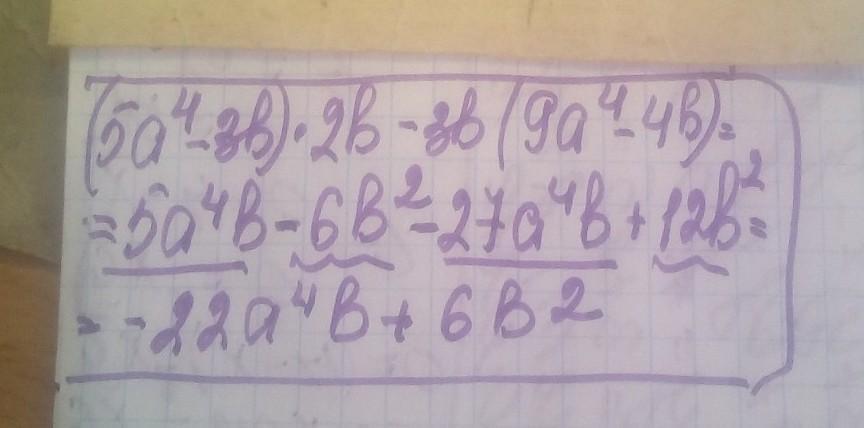 (5a⁴-3b)·2b-3b(9a⁴-4b)=
=5a⁴b-6b²-27a⁴b+12b²=
=-22a⁴b+6b²